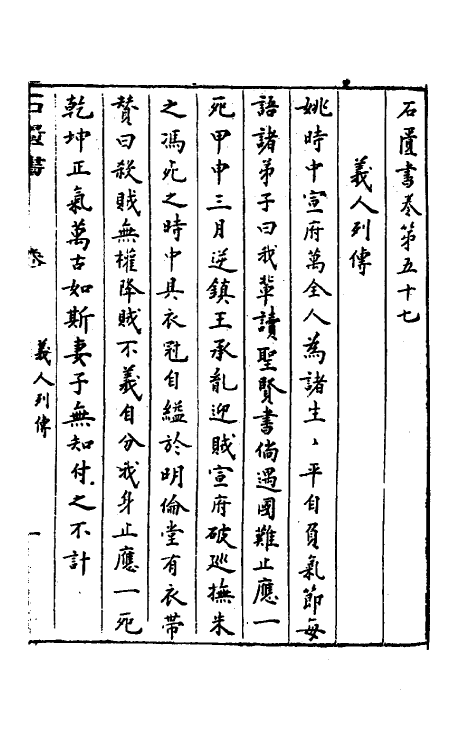 石匱書卷第五十七
義人列傳
姚時中宣府萬全人為諸生〻平自負氣節每
語諸弟子曰我輩讀聖賢書倘遇國難止應一
死甲申三月逆鎮王承亂迎賊宣府破巡撫朱
之馮死之時中具衣冠自縊於明倫堂有衣帶
賛曰殺賊無權降賊不義自分我身止應一死
乾坤正氣萬古如斯妻子無知付之不計
石匱書
卷
義人列傳
一